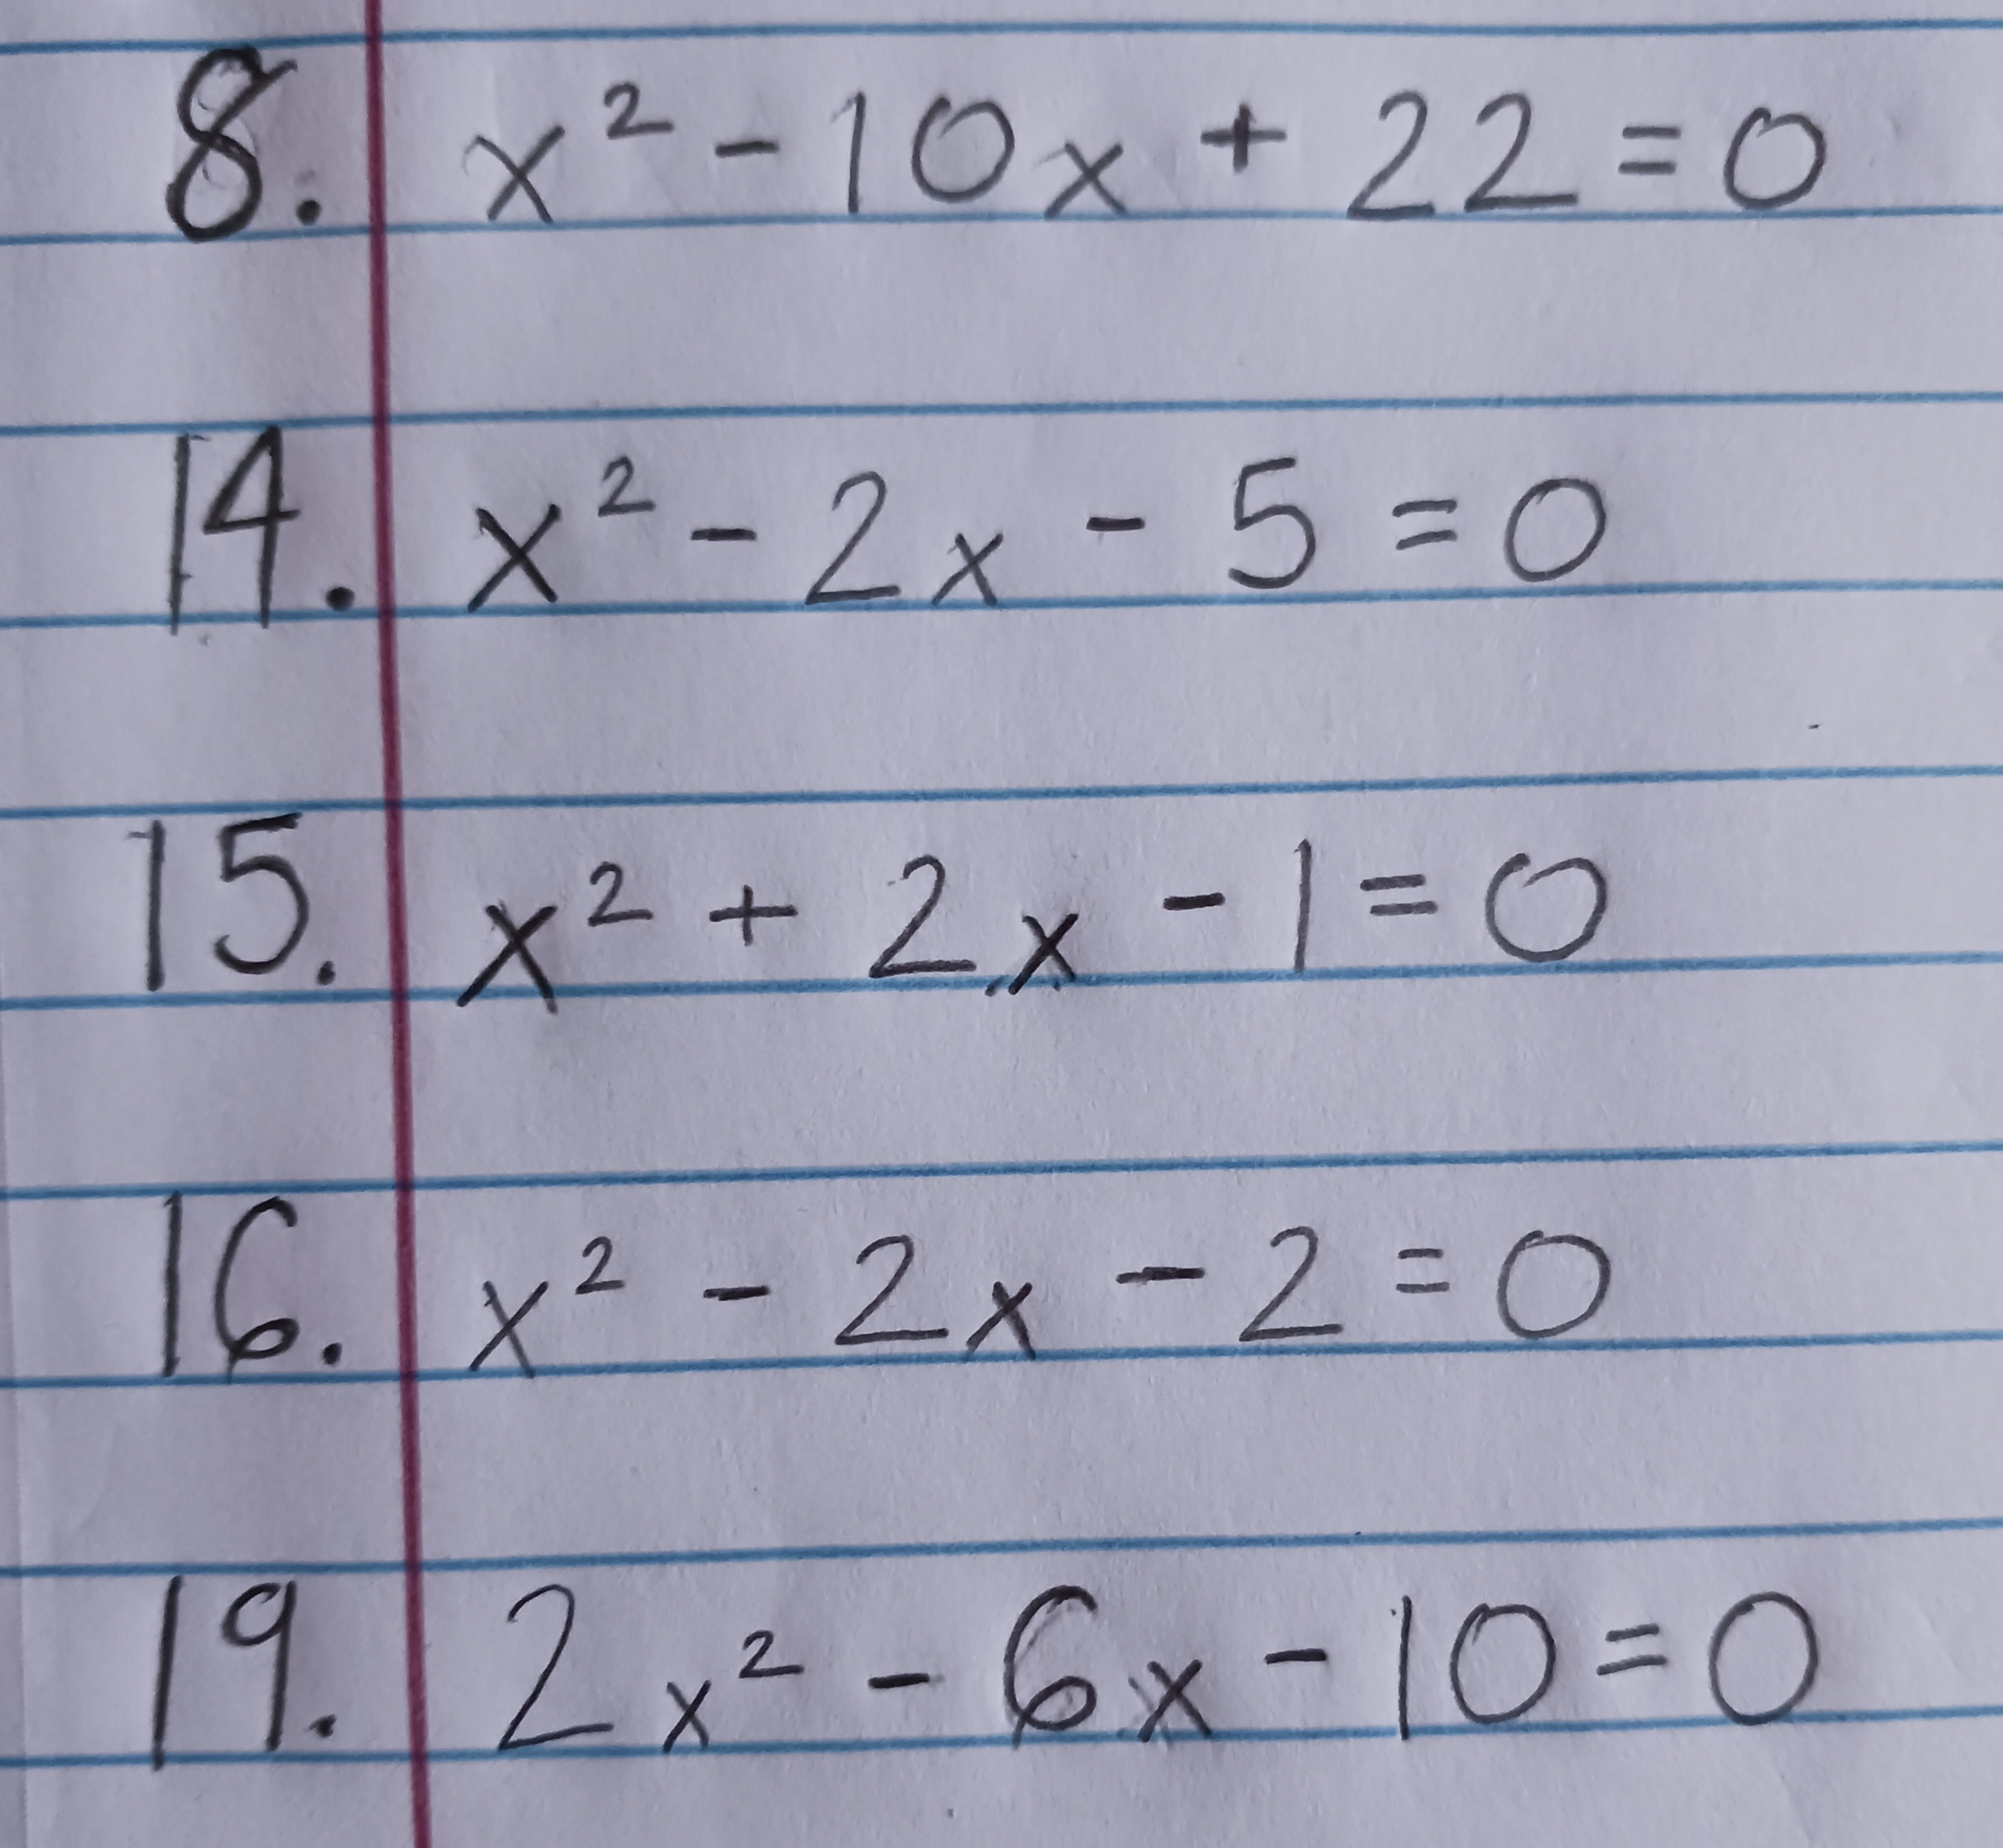 8. x² - 10x + 22 = 0
14. x² - 2x - 5 = 0
15. x² + 2x - 1 = 0
16. x² - 2x - 2 = 0
19. 2x² - 6x - 10 = 0